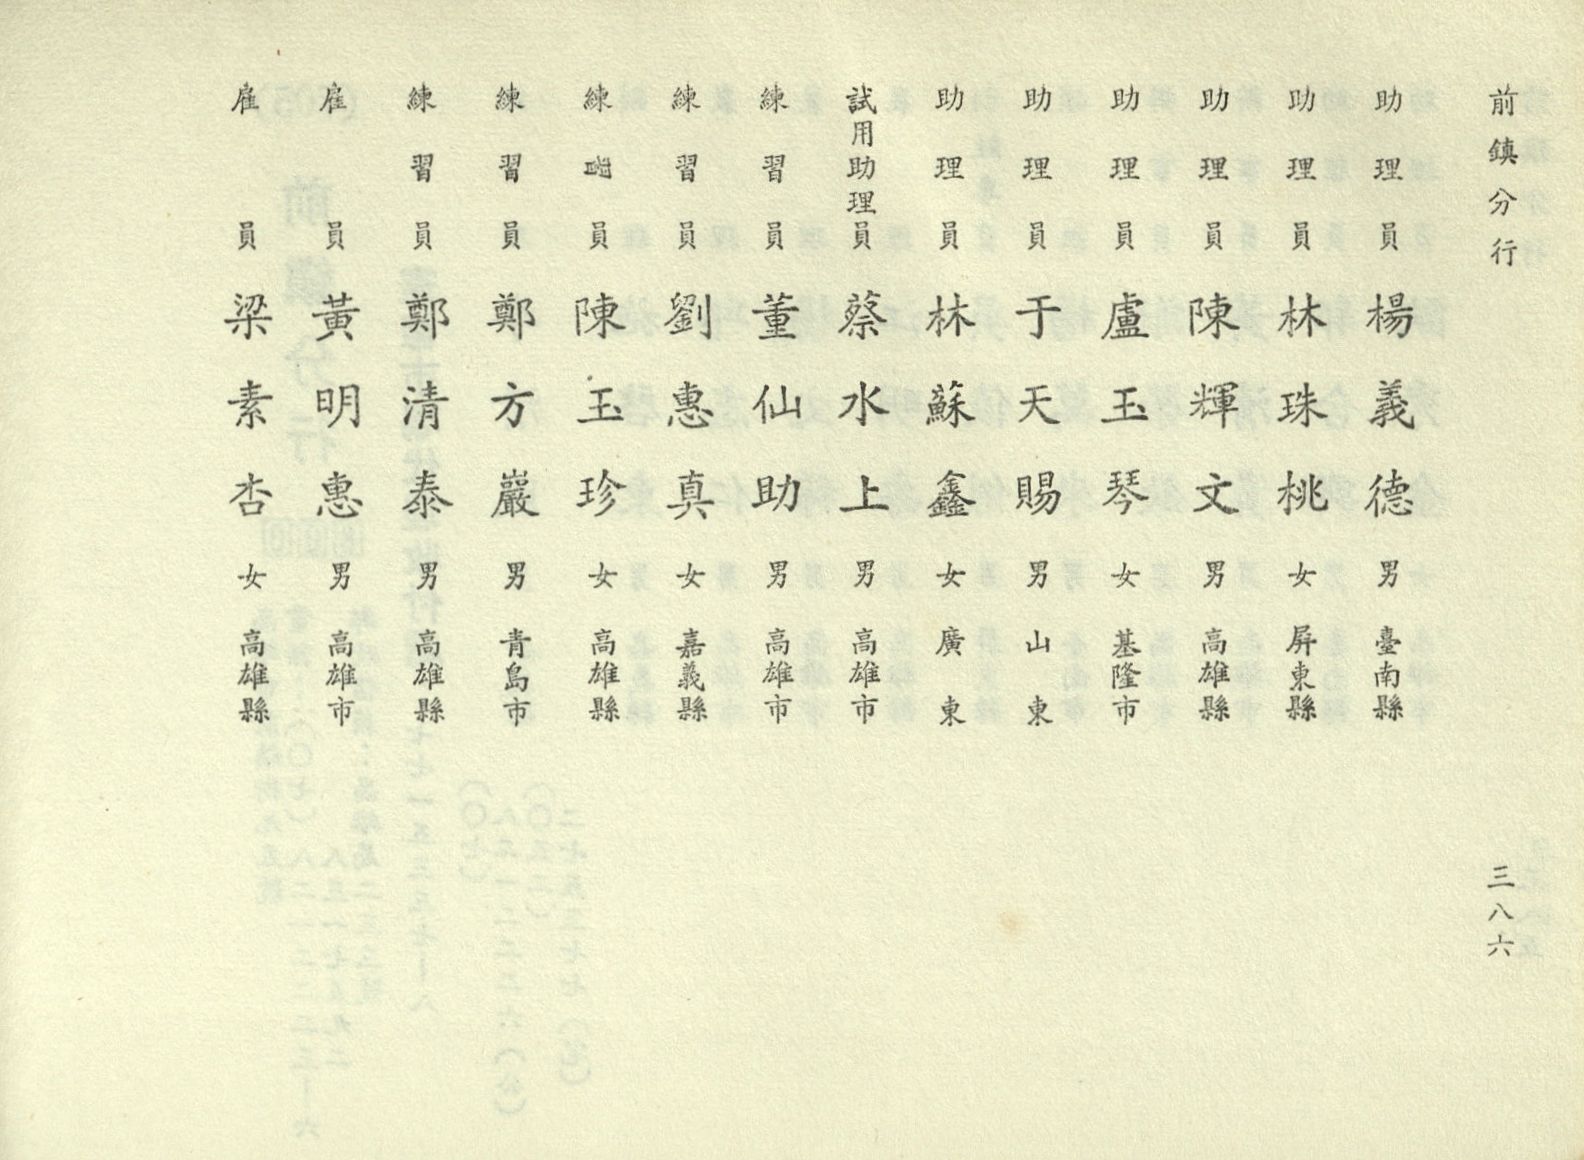 前鎮分行
三八六
助理員 楊義德 男 臺南縣
助理員 林珠桃 女 屏東縣
助理員 陳輝文 男 高雄縣
助理員 盧玉琴 女 基隆市
助理員 于天賜 男 山東
助理員 林蘇鑫 女 廣東
試用助理員 蔡水上 男 高雄市
練習員 董仙助 男 高雄市
練習員 劉惠真 女 嘉義縣
練習員 陳玉珍 女 高雄縣
練習員 鄭方巖 男 青島市
練習員 鄭清泰 男 高雄縣
雇員 黃明惠 男 高雄市
雇員 梁素杏 女 高雄縣